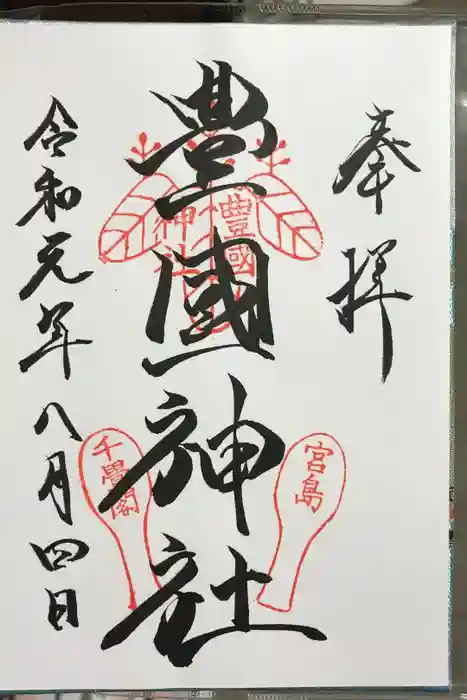 奉拝
豊國神社
豊國
神社
宮島
千畳閣
令和元年八月四日